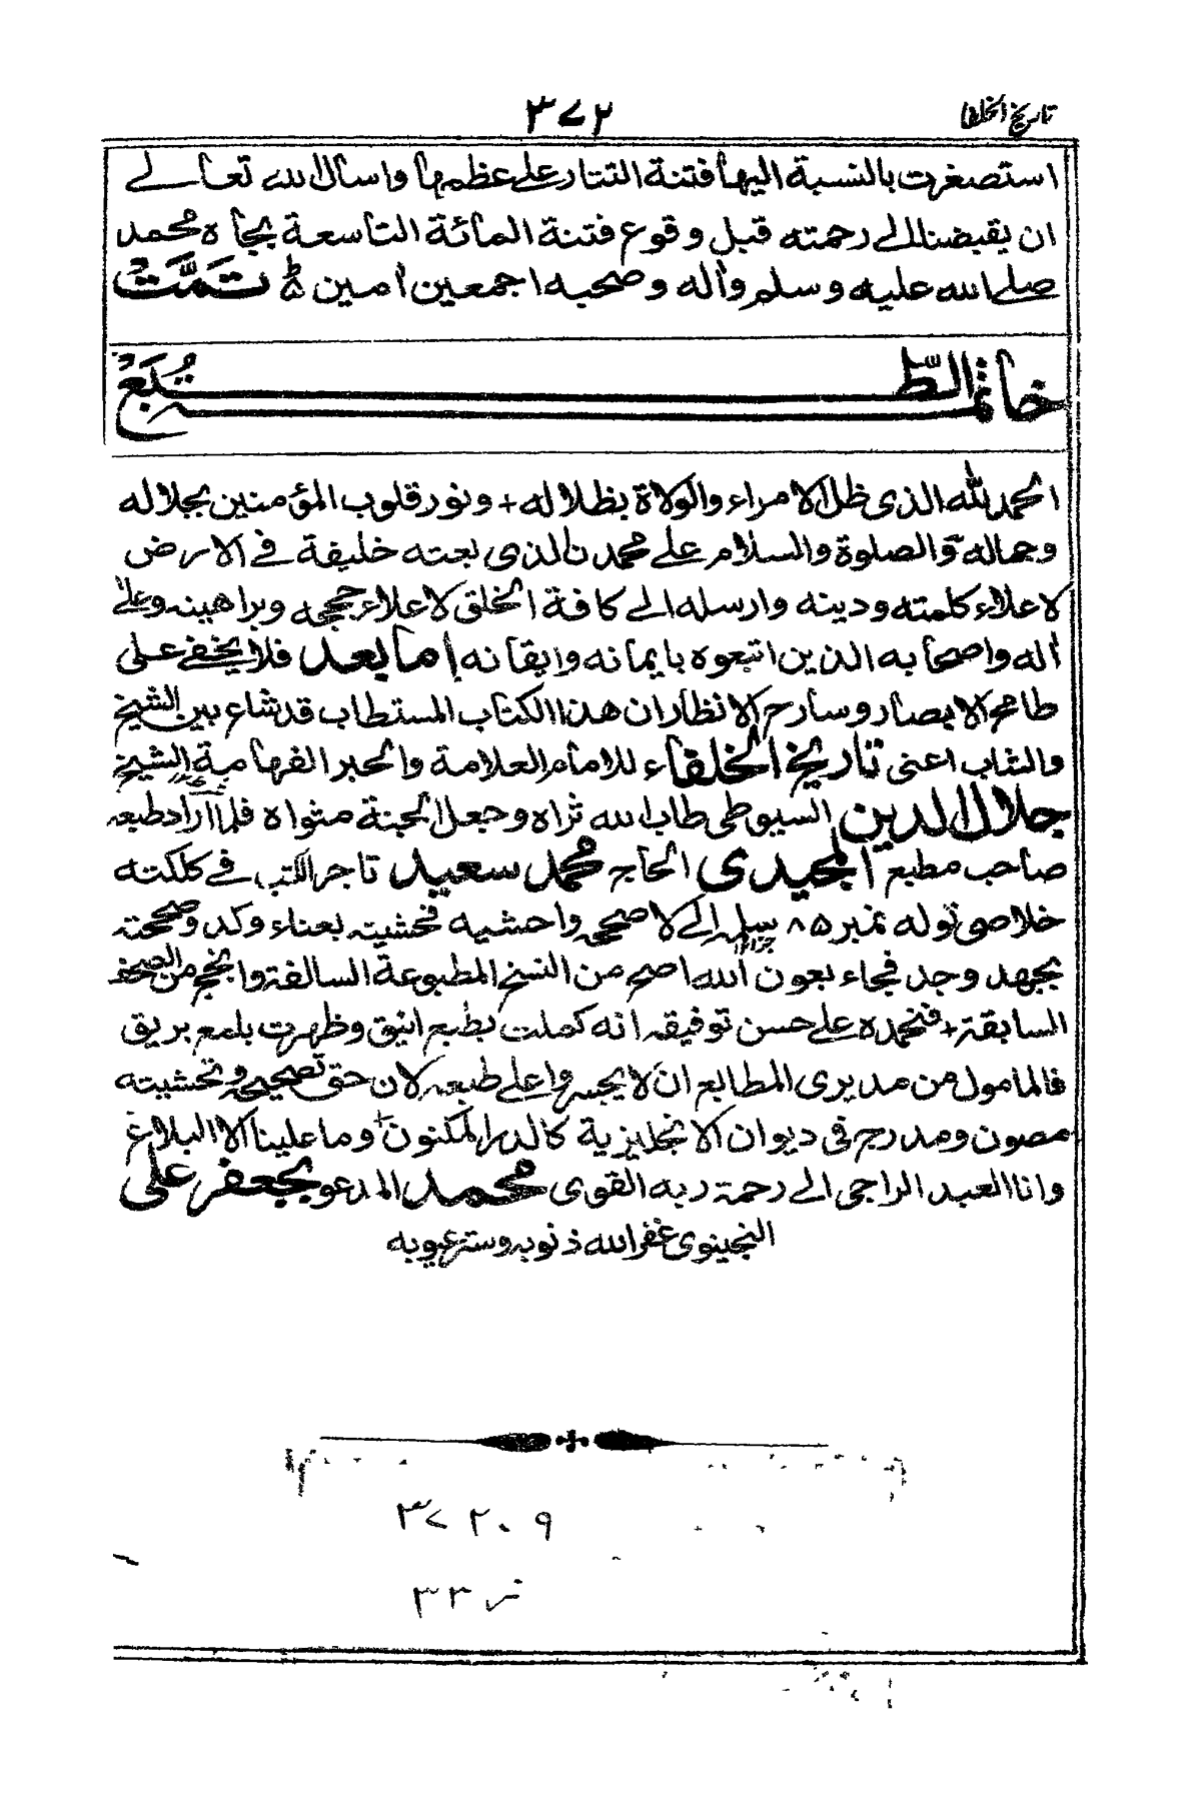 تاريخ الخلفا
٣٧٢
استصغرت بالنسبة اليها فتنة التتار على عظمها واسال الله تعالے
ان يقبضنا الے رحمته قبل وقوع فتنة المائة التاسعة بجاه محمد
صلے الله عليه وسلم واٰله وصحبه اجمعين اٰمين تَمَّتْ
خاتمة الطبع
الحمد لله الذى ظل الامراء والولاة بظلاله + ونور قلوب المؤمنين بجلاله
وجماله والصلوة والسلام علے محمدن الذى بعثه خليفة فے الارض
لاعلاء كلمته ودينه وارسله الے كافة الخلق لاعلاء حججه وبراهينه وعلےٰ
اٰله واصحابه الذين اتبعوه بايمانه وايقانه اما بعد فلا يخفے على
طامح الابصار وسارح الانظار ان هذا الكتاب المستطاب قد شاع بين الشيخ
والشاب اعنى تاريخ الخلفاء للامام العلامة والحبر الفهامة الشيخ
جلال الدين السيوطى طاب الله ثراه وجعل الجنة مثواه فلما اراد طبعه
صاحب مطبع المجيدى الحاج محمد سعيد تاجر الكتب فے كلكته
خلاصى توله نمبر ٨٥ الے لاصححه واحشيه فحشيته بعناء وكد وصححته
بجهد وجد فجاء بعون الله اصح من النسخ المطبوعة السالفة وانجح من الصحف
السابقة + فنحمده علے حسن توفيقه انه كملت بطبع انيق وظهرت بلمع بريق
فالمامول من مديرى المطابع ان لا يجسروا علے طبعه لان حق تصحيحه وتحشيته
مصون ومدرج فى ديوان الانجليزية كالدر المكنون وما علينا الا البلاغ
وانا العبد الراجى الے رحمة ربه القوى محمد المدعو بجعفر على
النجينوى غفر الله ذنوبه وستر عيوبه
٣٧٢٠٩
٣٣